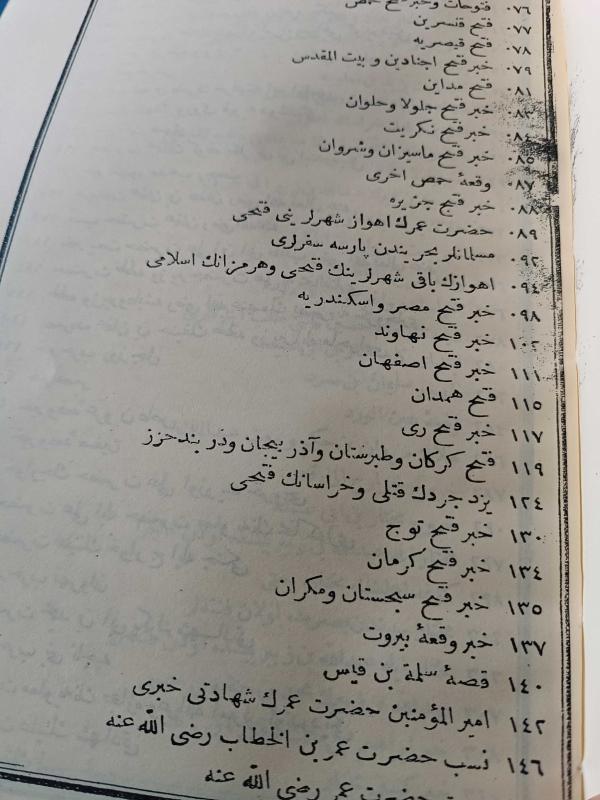 ٠٧٦ فتوحات وخبر فتح حمص
٠٧٧ فتح قنسرين
٠٧٨ فتح قيصريه
٠٧٩ خبر فتح اجنادين و بيت المقدس
٠٨١ فتح مداين
٠٨٣ خبر فتح جلولا وحلوان
٠٨٤ خبر فتح تكريت
٠٨٥ خبر فتح ماسيزان وشروان
٠٨٧ وقعۀ حمص اخرى
٠٨٨ خبر فتح جزيره
٠٨٩ حضرت عمرك اهواز شهرلرينى فتحى
٠٩٢ مسلمانلر بحريندن پارسه سفرلرى
٠٩٤ اهوازك باقى شهرلرينك فتحى وهرمزانك اسلامى
٠٩٨ خبر فتح مصر واسكندريه
١٠٢ خبر فتح نهاوند
١١١ خبر فتح اصفهان
١١٥ فتح همدان
١١٧ خبر فتح رى
١١٩ فتح كركان وطبرستان وآذر بيجان ودر بند حزز
١٢٤ يزد جردك قتلى وخراسانك فتحى
١٣٠ خبر فتح توج
١٣٤ خبر فتح كرمان
١٣٥ خبر فتح سجستان ومكران
١٣٧ خبر وقعۀ بيروت
١٤٠ قصۀ سلمة بن قيس
١٤٢ امير المؤمنين حضرت عمرك شهادتى خبرى
١٤٦ نسب حضرت عمر بن الخطاب رضى الله عنه
حضرت عمر رضى الله عنه